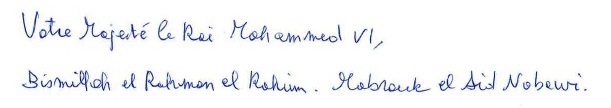 Votre Majesté le Roi Mohammed VI,
Bismillah el Rahman el Rahim. Mabrouk el Aid Nabawi.